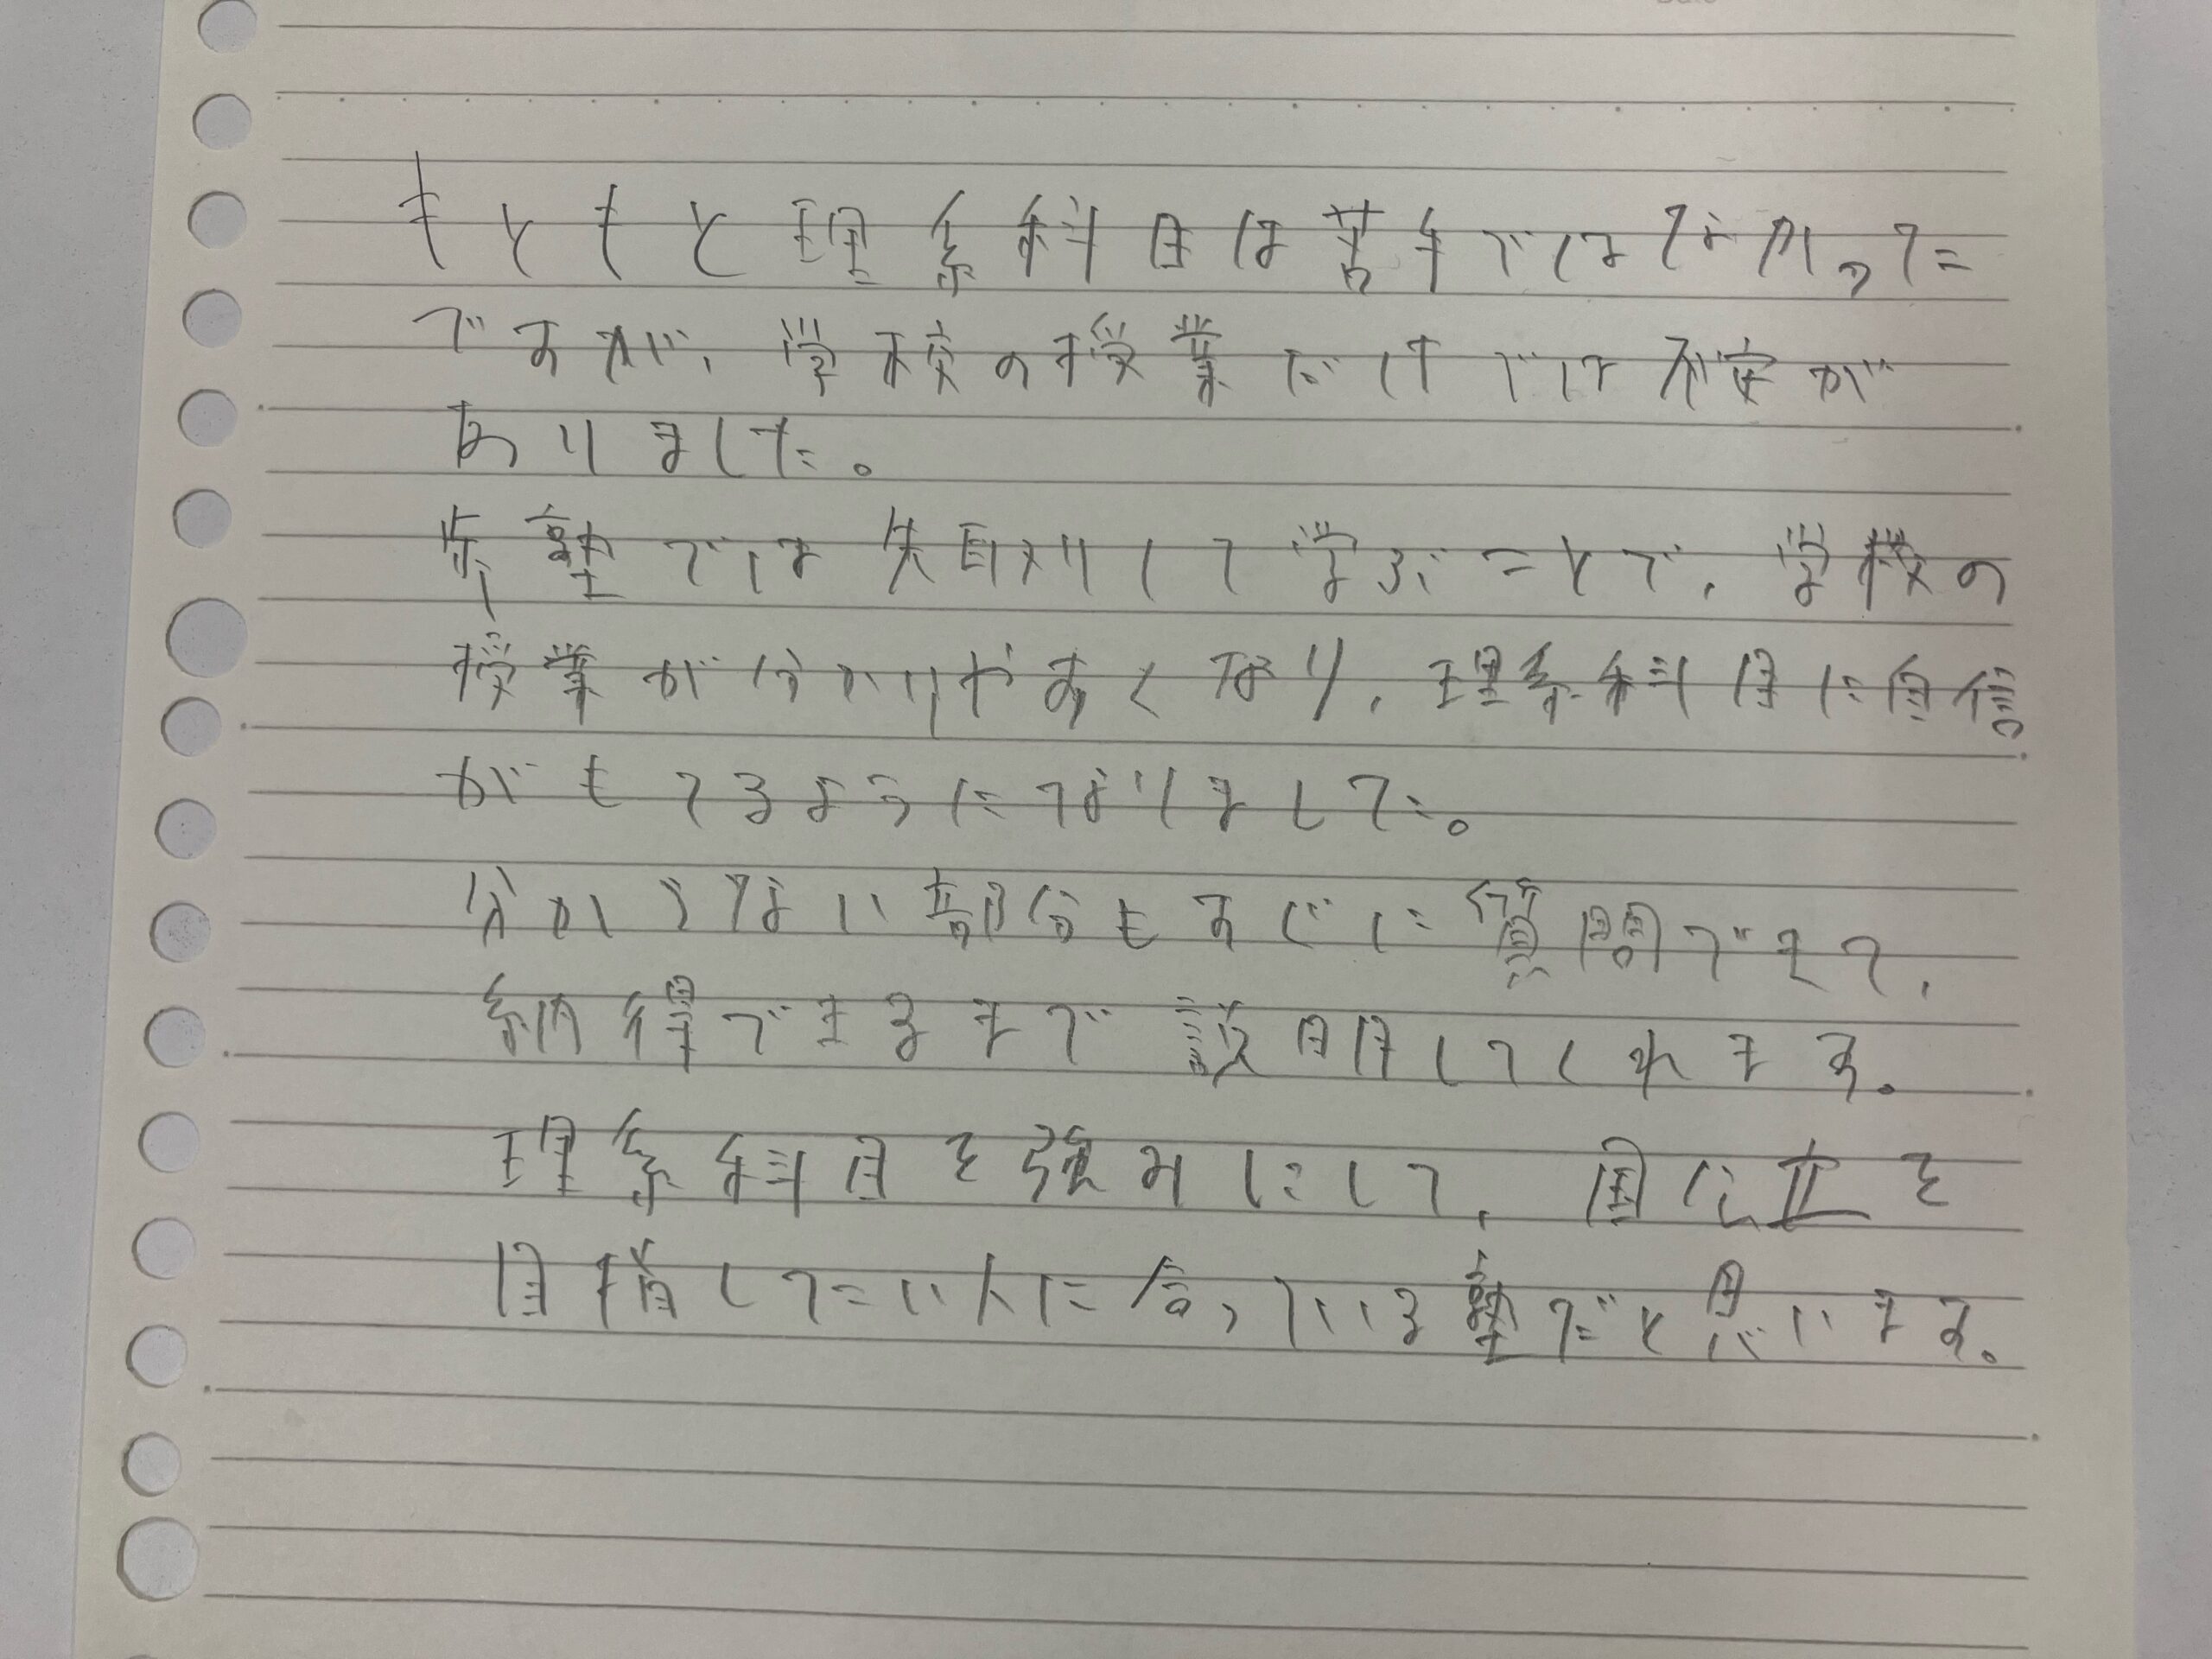 もともと理系科目は苦手ではなかった
ですが、学校の授業だけでは不安が
ありました。
当塾では先取りして学ぶことで、学校の
授業が分かりやすくなり、理系科目に自信
がもてるようになりました。
分からない部分もすぐに質問できて、
納得できるまで説明してくれます。
理系科目を強みにして、国公立を
目指したい人に合っている塾だと思います。